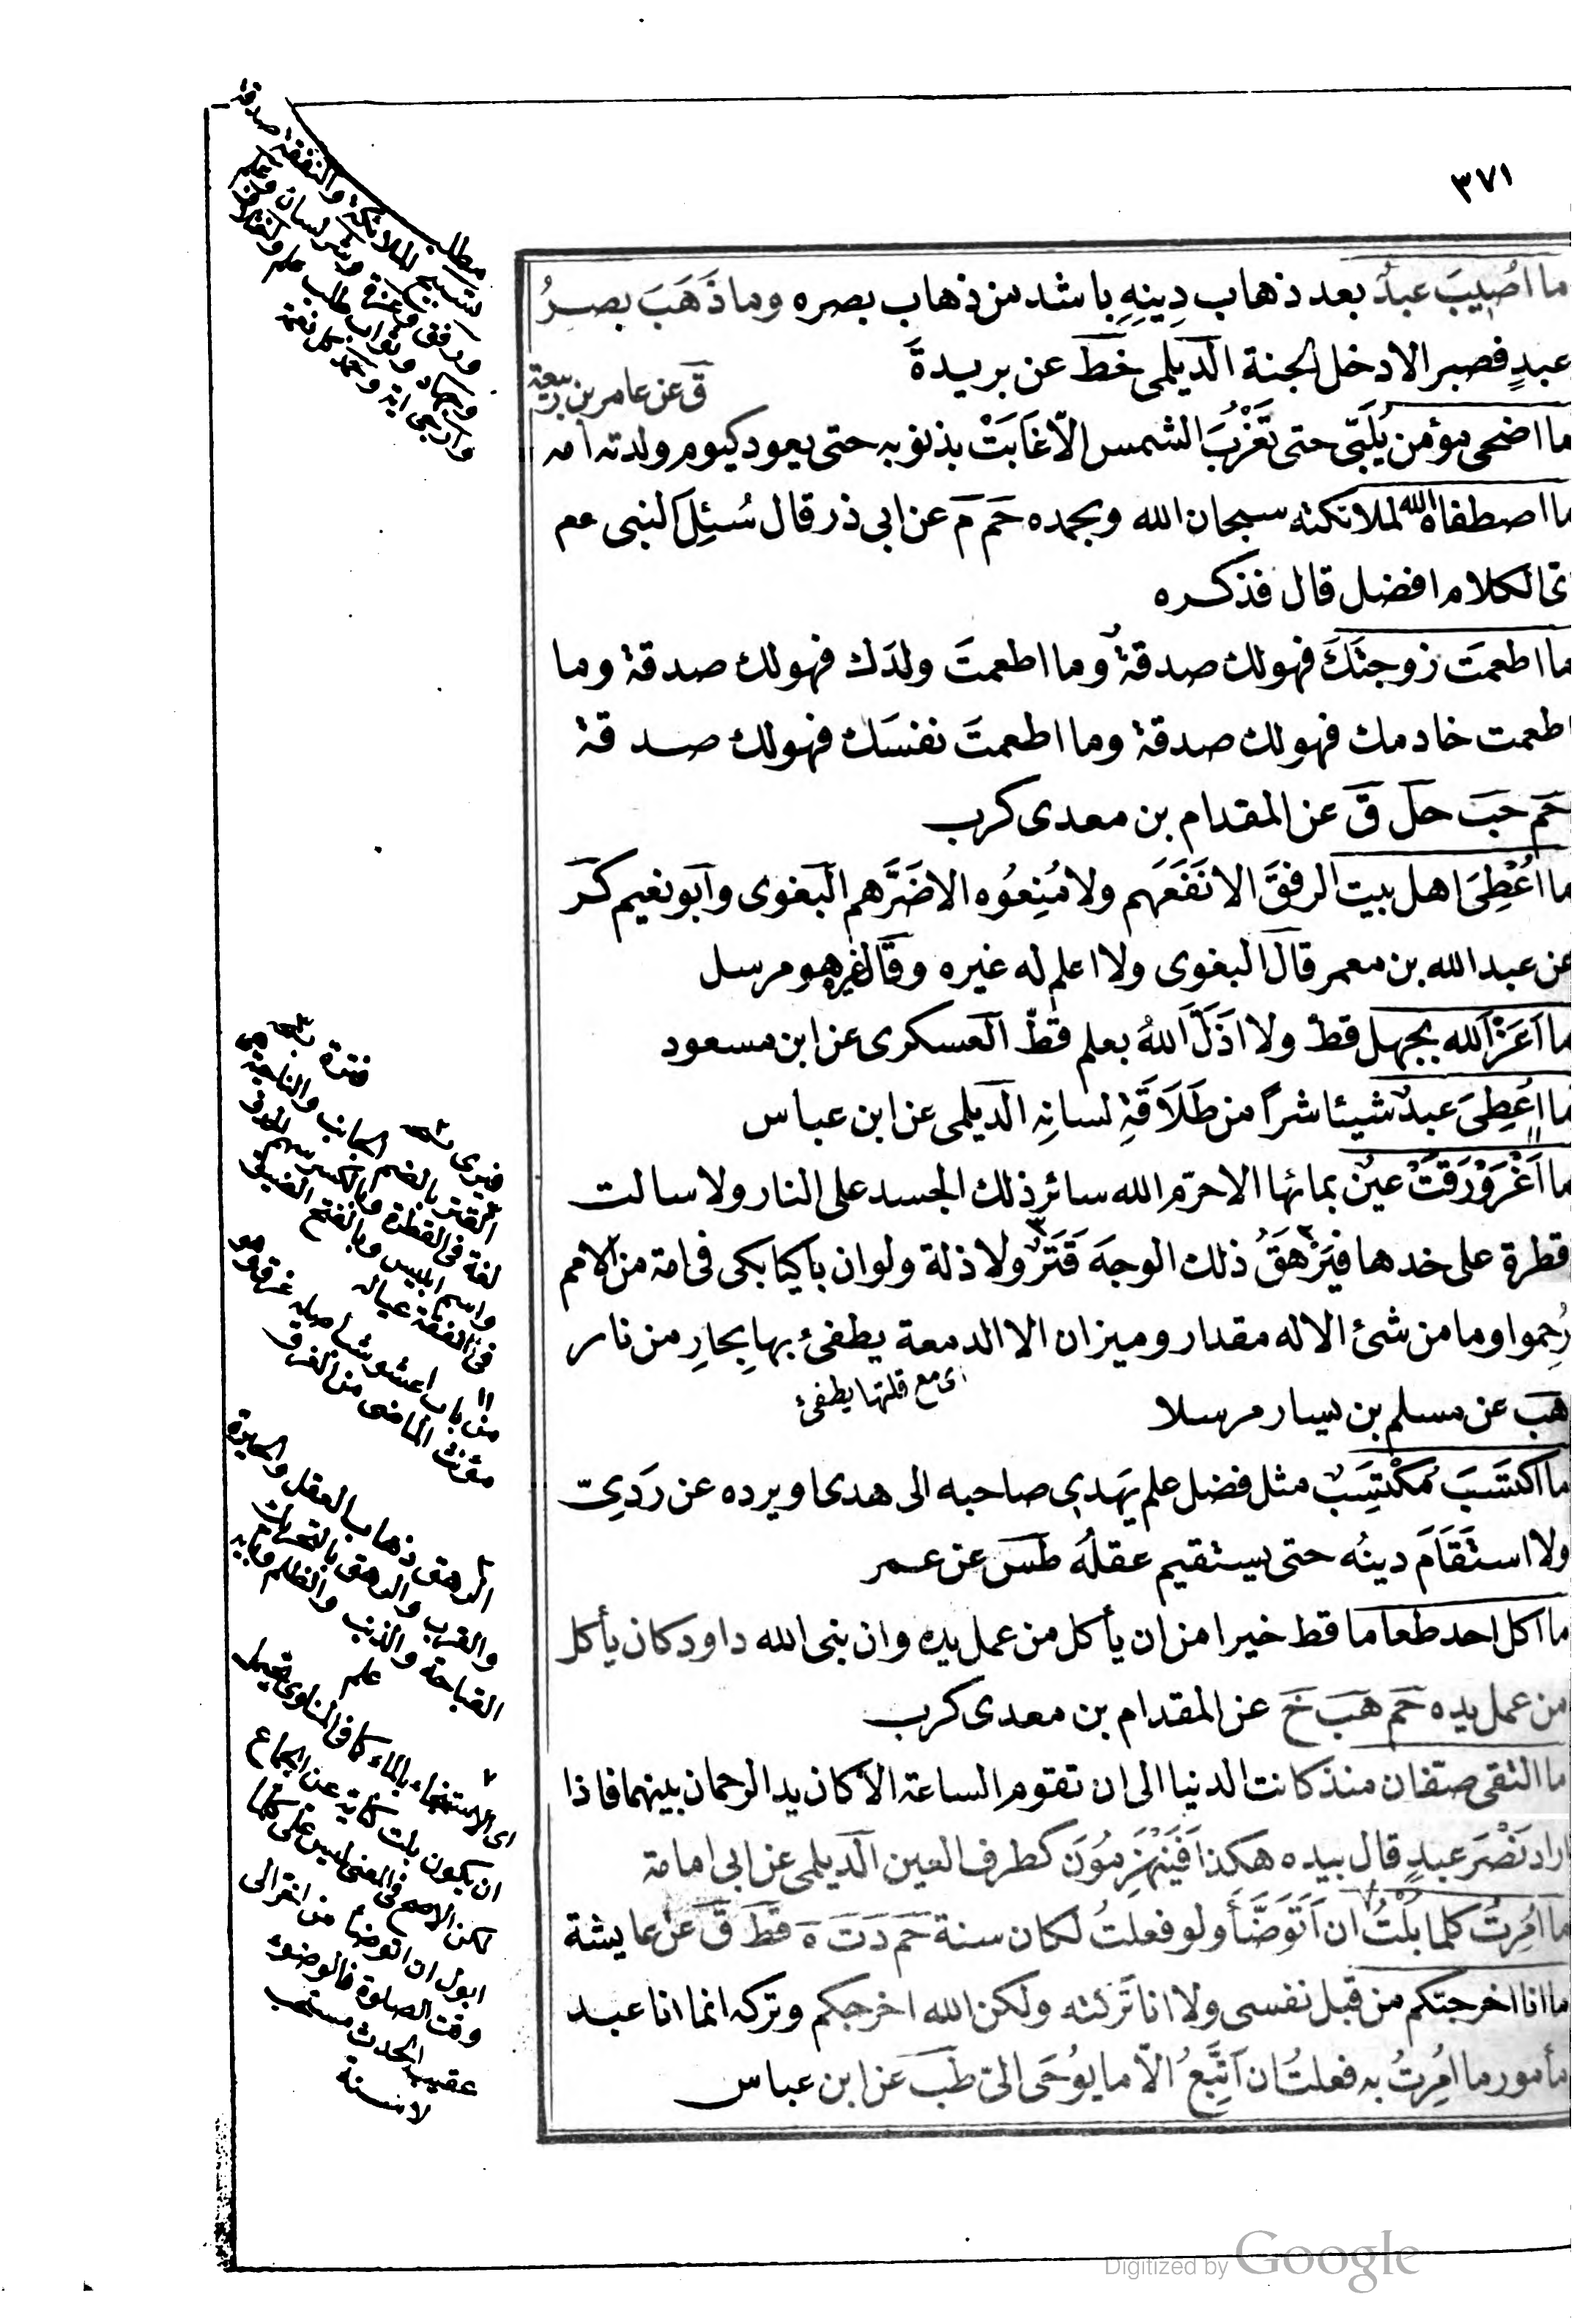 ٣٧١
ما اُصيبَ عبدٌ بعد ذهاب دِينِهِ باشد من ذهاب بصره وما ذَهَبَ بصرُ
عبدٍ فصبر الا دخل الجنة الديلمى خط عن بريدة
ق عن عامر بن ربيعة
ما اضحى مؤمن يُلَبّى حتى تَغْرُبَ الشمس الاّ غَابَتْ بذنوبه حتى يعود كيوم ولدته امه
ما اصطفاه الله لملائكته سبحان الله وبحمده حم م عن ابى ذر قال سُئِلَ النبى عم
اىّ الكلام افضل قال فذكره
ما اطعمتَ زوجتَكَ فهو لك صدقةٌ وما اطعمتَ ولدَك فهو لك صدقة وما
اطعمت خادمك فهو لك صدقة وما اطعمتَ نفسَك فهو لك صدقة
حم حب حل ق عن المقدام بن معدى كرب
ما اُعْطِىَ اهل بيت الرفقَ الا نَفَعَهم ولا مُنِعُوه الا ضَرَّهم البغوى وابو نعيم كر
عن عبد الله بن معمر قال البغوى ولا اعلم له غيره وقال غيره هو مرسل
ما اَعَزَّ الله بجهل قطّ ولا اذَلَّ اللهُ بعلم قطّ العسكرى عن ابن مسعود
ما اُعْطِىَ عبدٌ شيئا شراً من طَلَاقَةِ لسانِه الديلمى عن ابن عباس
ما اغْرَوْرَقَتْ عينٌ بمائها الا حرّم الله سائر ذلك الجسد على النار ولا سالت
قطرة على خدها فيَرْهَقُ ذلك الوجهَ قَتَرٌ ولا ذلة ولو ان باكيا بكى فى امة من الامم
رُحِموا وما من شئ الا له مقدار وميزان الا الدمعة يطفئ بها بِحارِ من نار
اى مع قلتها يطفئ
هب عن مسلم بن يسار مرسلا
ما اكتَسَبَ مُكْتَسِبٌ مثل فضل علم يَهدِى صاحبه الى هدى او يرده عن رَدِىّ
ولا استَقَامَ دينُه حتى يستقيم عقلُه طس عن عمر
ما اكل احد طعاما قط خيرا من ان يأكل من عمل يده وان نبى الله داود كان يأكل
من عمل يده حم هب خ عن المقدام بن معدى كرب
ما التقى صتفان منذ كانت الدنيا الى ان تقوم الساعة الا كان يد الرحمان بينهما فاذا
اراد نَصْرَ عبدٍ قال بيده هكذا فَيَنْهَزِمُونَ كطرف العين الديلمى عن ابى امامة
ما اُمِرتُ كلما بُلْتُ ان اَتَوَضَّأَ ولو فعلتُ لكان سنة حم د ت ه قط ق عن عايشة
ما انا اخرجتكم من قبل نفسى ولا انا تركته ولكن الله اخرجكم وتركه انما انا عبد
مأمور ما اُمِرتُ به فعلتُ ان اَتَّبِعُ الاّ ما يُوحَى الىّ طب عن ابن عباس
مطلب
تسبيح الملائكة والنفقة صدقة
ورفق وعزة وشر لسان وعلم
وجهاد وثواب طلب علم
فيرى
القتر بالضم الجانب والناحية
لغة فى القطرة وبالكسر سهم الهدف
واسم ابليس وبالفتح الضيق
فى النفقة عياله
من باب اعشوشب اصله غرق وهو
مؤنث الماضى من الغرق
الرهق ذهاب العقل والحيرة
والقرب والرهق بالتحريك
القباحة والذنب والظلم
علم
اى الاستنجاء بالماء كما فى المناوى يحتمل
ان يكون بلت كناية عن الجماع
لكن الاصح فى المعنى ليس على كلما
ابول ان اتوضأ من انتقر الى
وقت الصلوة فالوضوء
عقيب الحدث مستحب
لا سنة
Digitized by Google